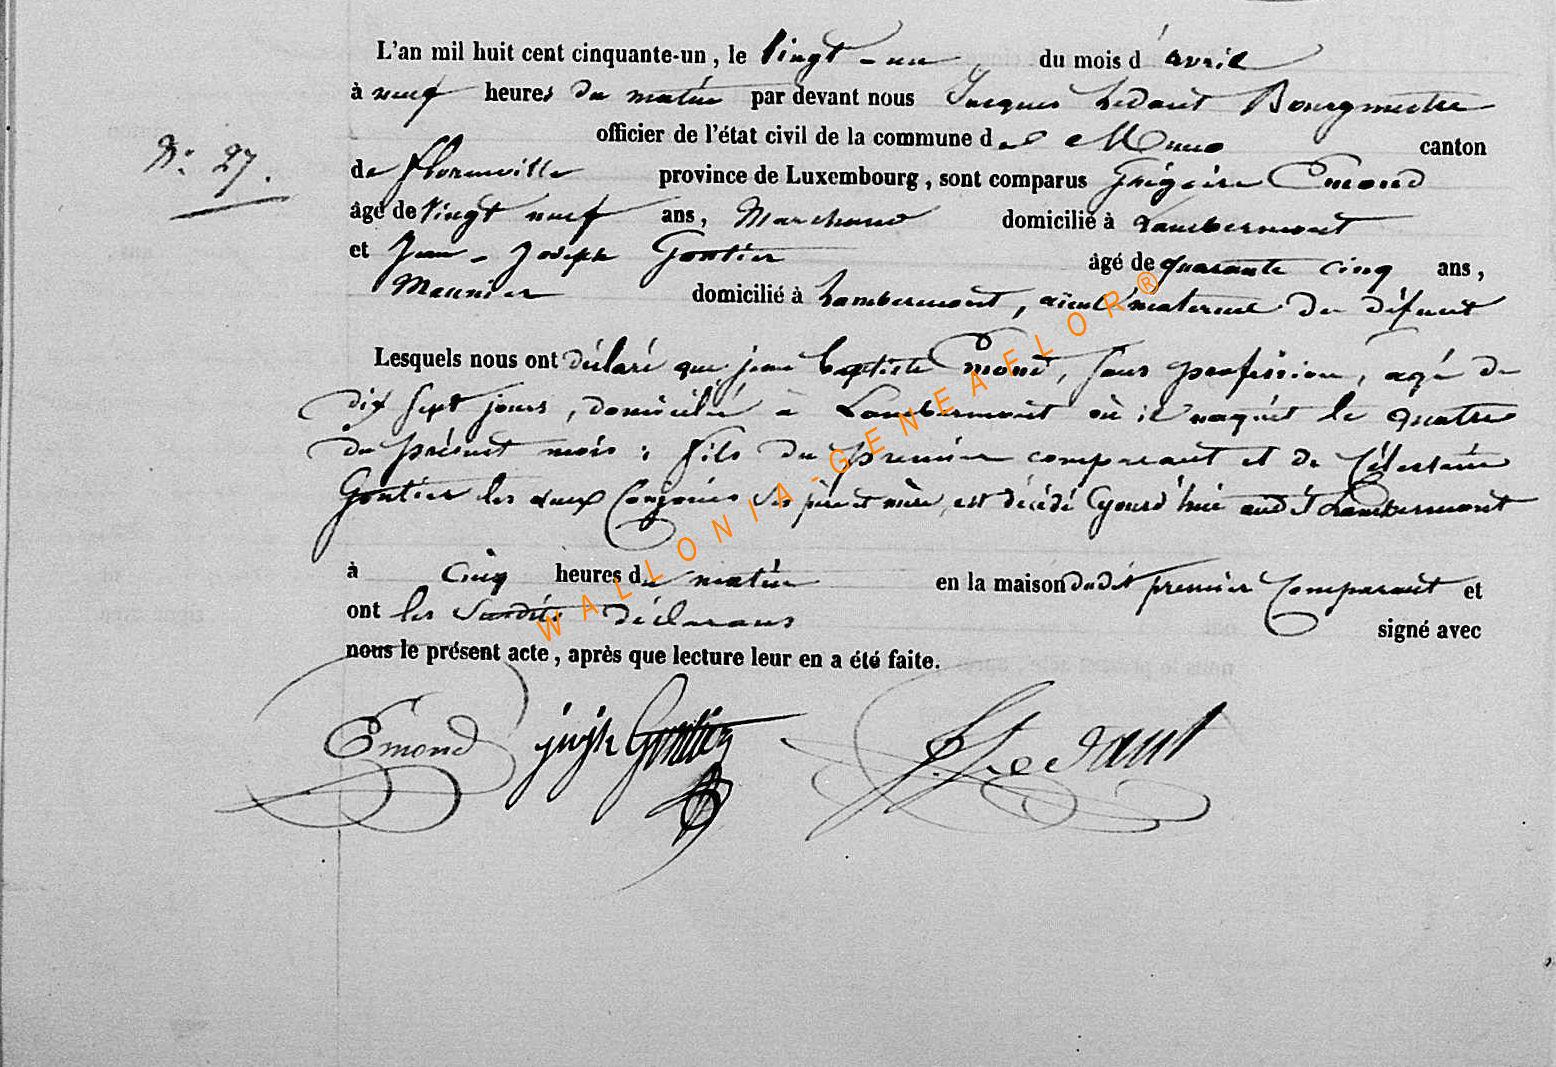 L'an mil huit cent cinquante-un, le vingt-un du mois d'avril
à neuf heures du matin par devant nous Jacques Hedant Bourgmestre
officier de l'état civil de la commune de Muno canton
N° 27.
de florenville province de Luxembourg, sont comparus Grégoire Emond
âgé de vingt neuf ans, Marchand domicilié à Lambermont
et Jean-Joseph Gontier âgé de quarante cinq ans,
Meunier domicilié à Lambermont, aïeul maternel du défunt
Lesquels nous ont déclaré que jean baptiste Emond, sans profession, agé de
dix sept jours, domicilié à Lambermont où il naquit le quatre
du présent mois; fils du premier comparant et de Célestine
Gontier les deux conjoints ses père et mère, est décédé aujourd'hui audit Lambermont
à cinq heures du matin en la maison dudit premier Comparant et
ont les susdits déclarans signé avec
nous le présent acte, après que lecture leur en a été faite.
Emond Gontier Hedant
WALLONIA-GENEAFLOR®